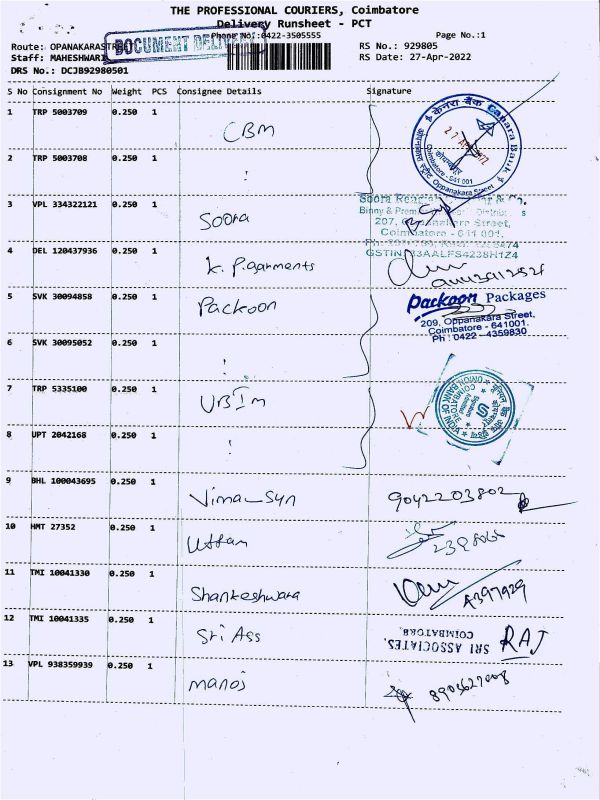 THE PROFESSIONAL COURIERS, Coimbatore
Delivery Runsheet - PCT
DOCUMENT DELIVERY
Phone No.:0422-3505555
Page No.:1
Route: OPANAKARASTREET
RS No.: 929805
Staff: MAHESHWARI
RS Date: 27-Apr-2022
DRS No.: DCJB92980501
S No Consignment No Weight PCS Consignee Details Signature
1 TRP 5003709 0.250 1 CBM
केनरा बैंक Canara Bank
Coimbatore - 641 001
Oppanakara Street
2 TRP 5003708 0.250 1
3 VPL 334322121 0.250 1 Soora
207, Oppanakara Street,
Coimbatore - 641 001.
4 DEL 120437936 0.250 1 K. P. garments
5 SVK 30094858 0.250 1 Packoon
Packoon Packages
209, Oppanakara Street,
Coimbatore - 641001.
Ph : 0422 - 4359830
6 SVK 30095052 0.250 1
7 TRP 5335100 0.250 1 UBIm
UNION BANK OF INDIA
COIMBATORE
8 UPT 2042168 0.250 1
9 BHL 100043695 0.250 1 Vimal Syn 9042203802
10 HMT 27352 0.250 1 Uttam
11 TMI 10041330 0.250 1 Shankeshwara
12 TMI 10041335 0.250 1 Sri Ass
SRI ASSOCIATES,
COIMBATORE.
RAJ
13 VPL 938359939 0.250 1 Manoj 8903627008